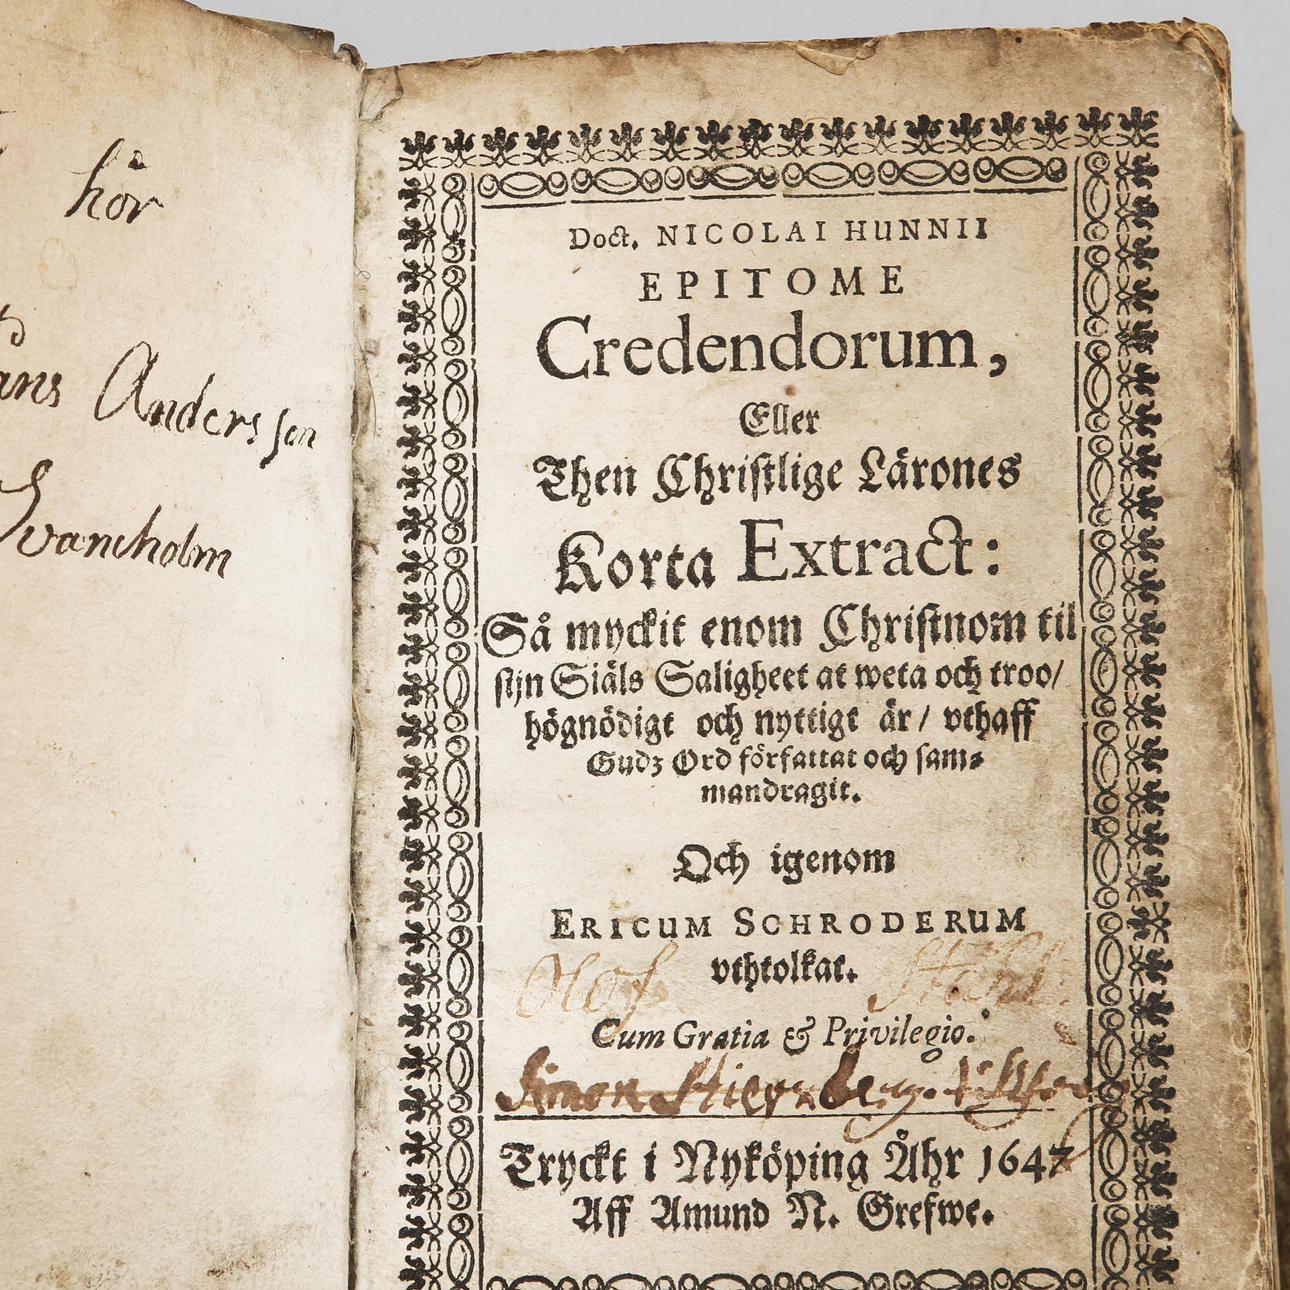 hör
Andersson
Svaneholm
Doct. NICOLAI HUNNII
EPITOME
Credendorum,
Eller
Then Christlige Lärones
Korta Extract:
Så myckit enom Christnom til
sijn Siäls Saligheet at weta och troo/
högnödigt och nyttigt är / vthaff
Gudz Ord författat och sam-
mandragit.
Och igenom
ERICUM SCHRODERUM
vthtolkat.
Olof Ståhl
Cum Gratia & Privilegio.
Simon
Tryckt i Nyköping Åhr 1647
Aff Amund N. Grefwe.